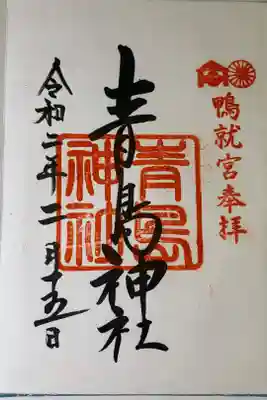 鴨就宮奉拝
青島神社
青島神社
令和二年二月十五日